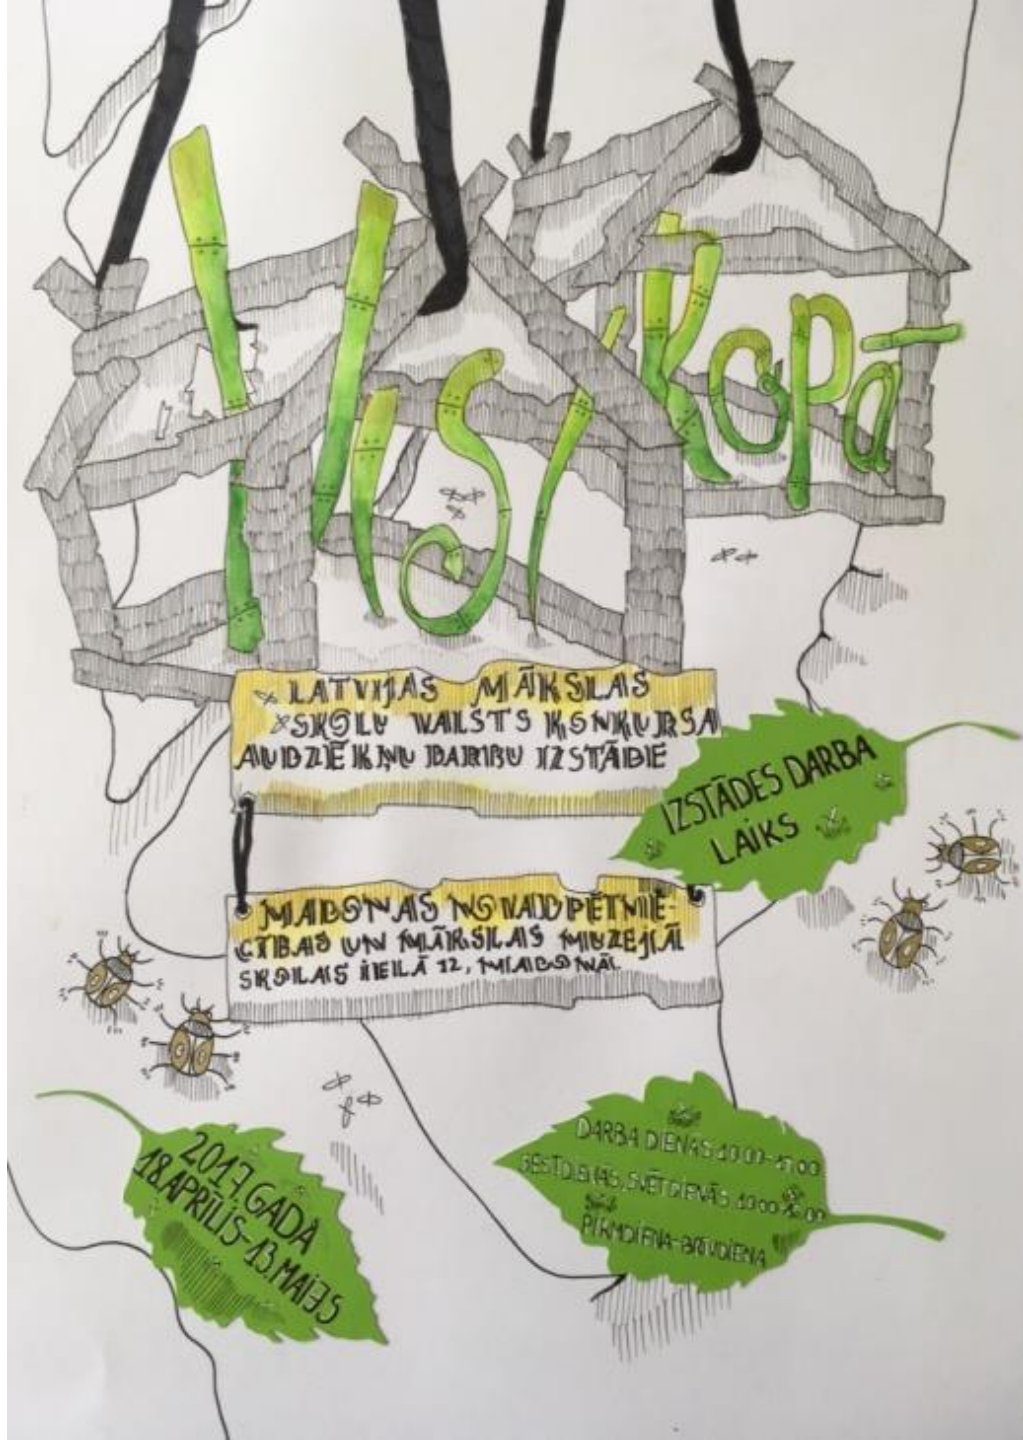 Visi Kopā
LATVIJAS MĀKSLAS
SKOLU VALSTS KONKURSA
AUDZĒKŅU DARBU IZSTĀDE
IZSTĀDES DARBA
LAIKS
MADONAS NOVADPĒTNIE-
CĪBAS UN MĀKSLAS MUZEJĀ
SKOLAS IELĀ 12, MADONĀ.
2017. GADA
18. APRĪLIS - 13. MAIJS
DARBA DIENĀS 10.00-17.00
SESTDIENĀS, SVĒTDIENĀS, 10.00-16.00
PIRMDIENA-BRĪVDIENA